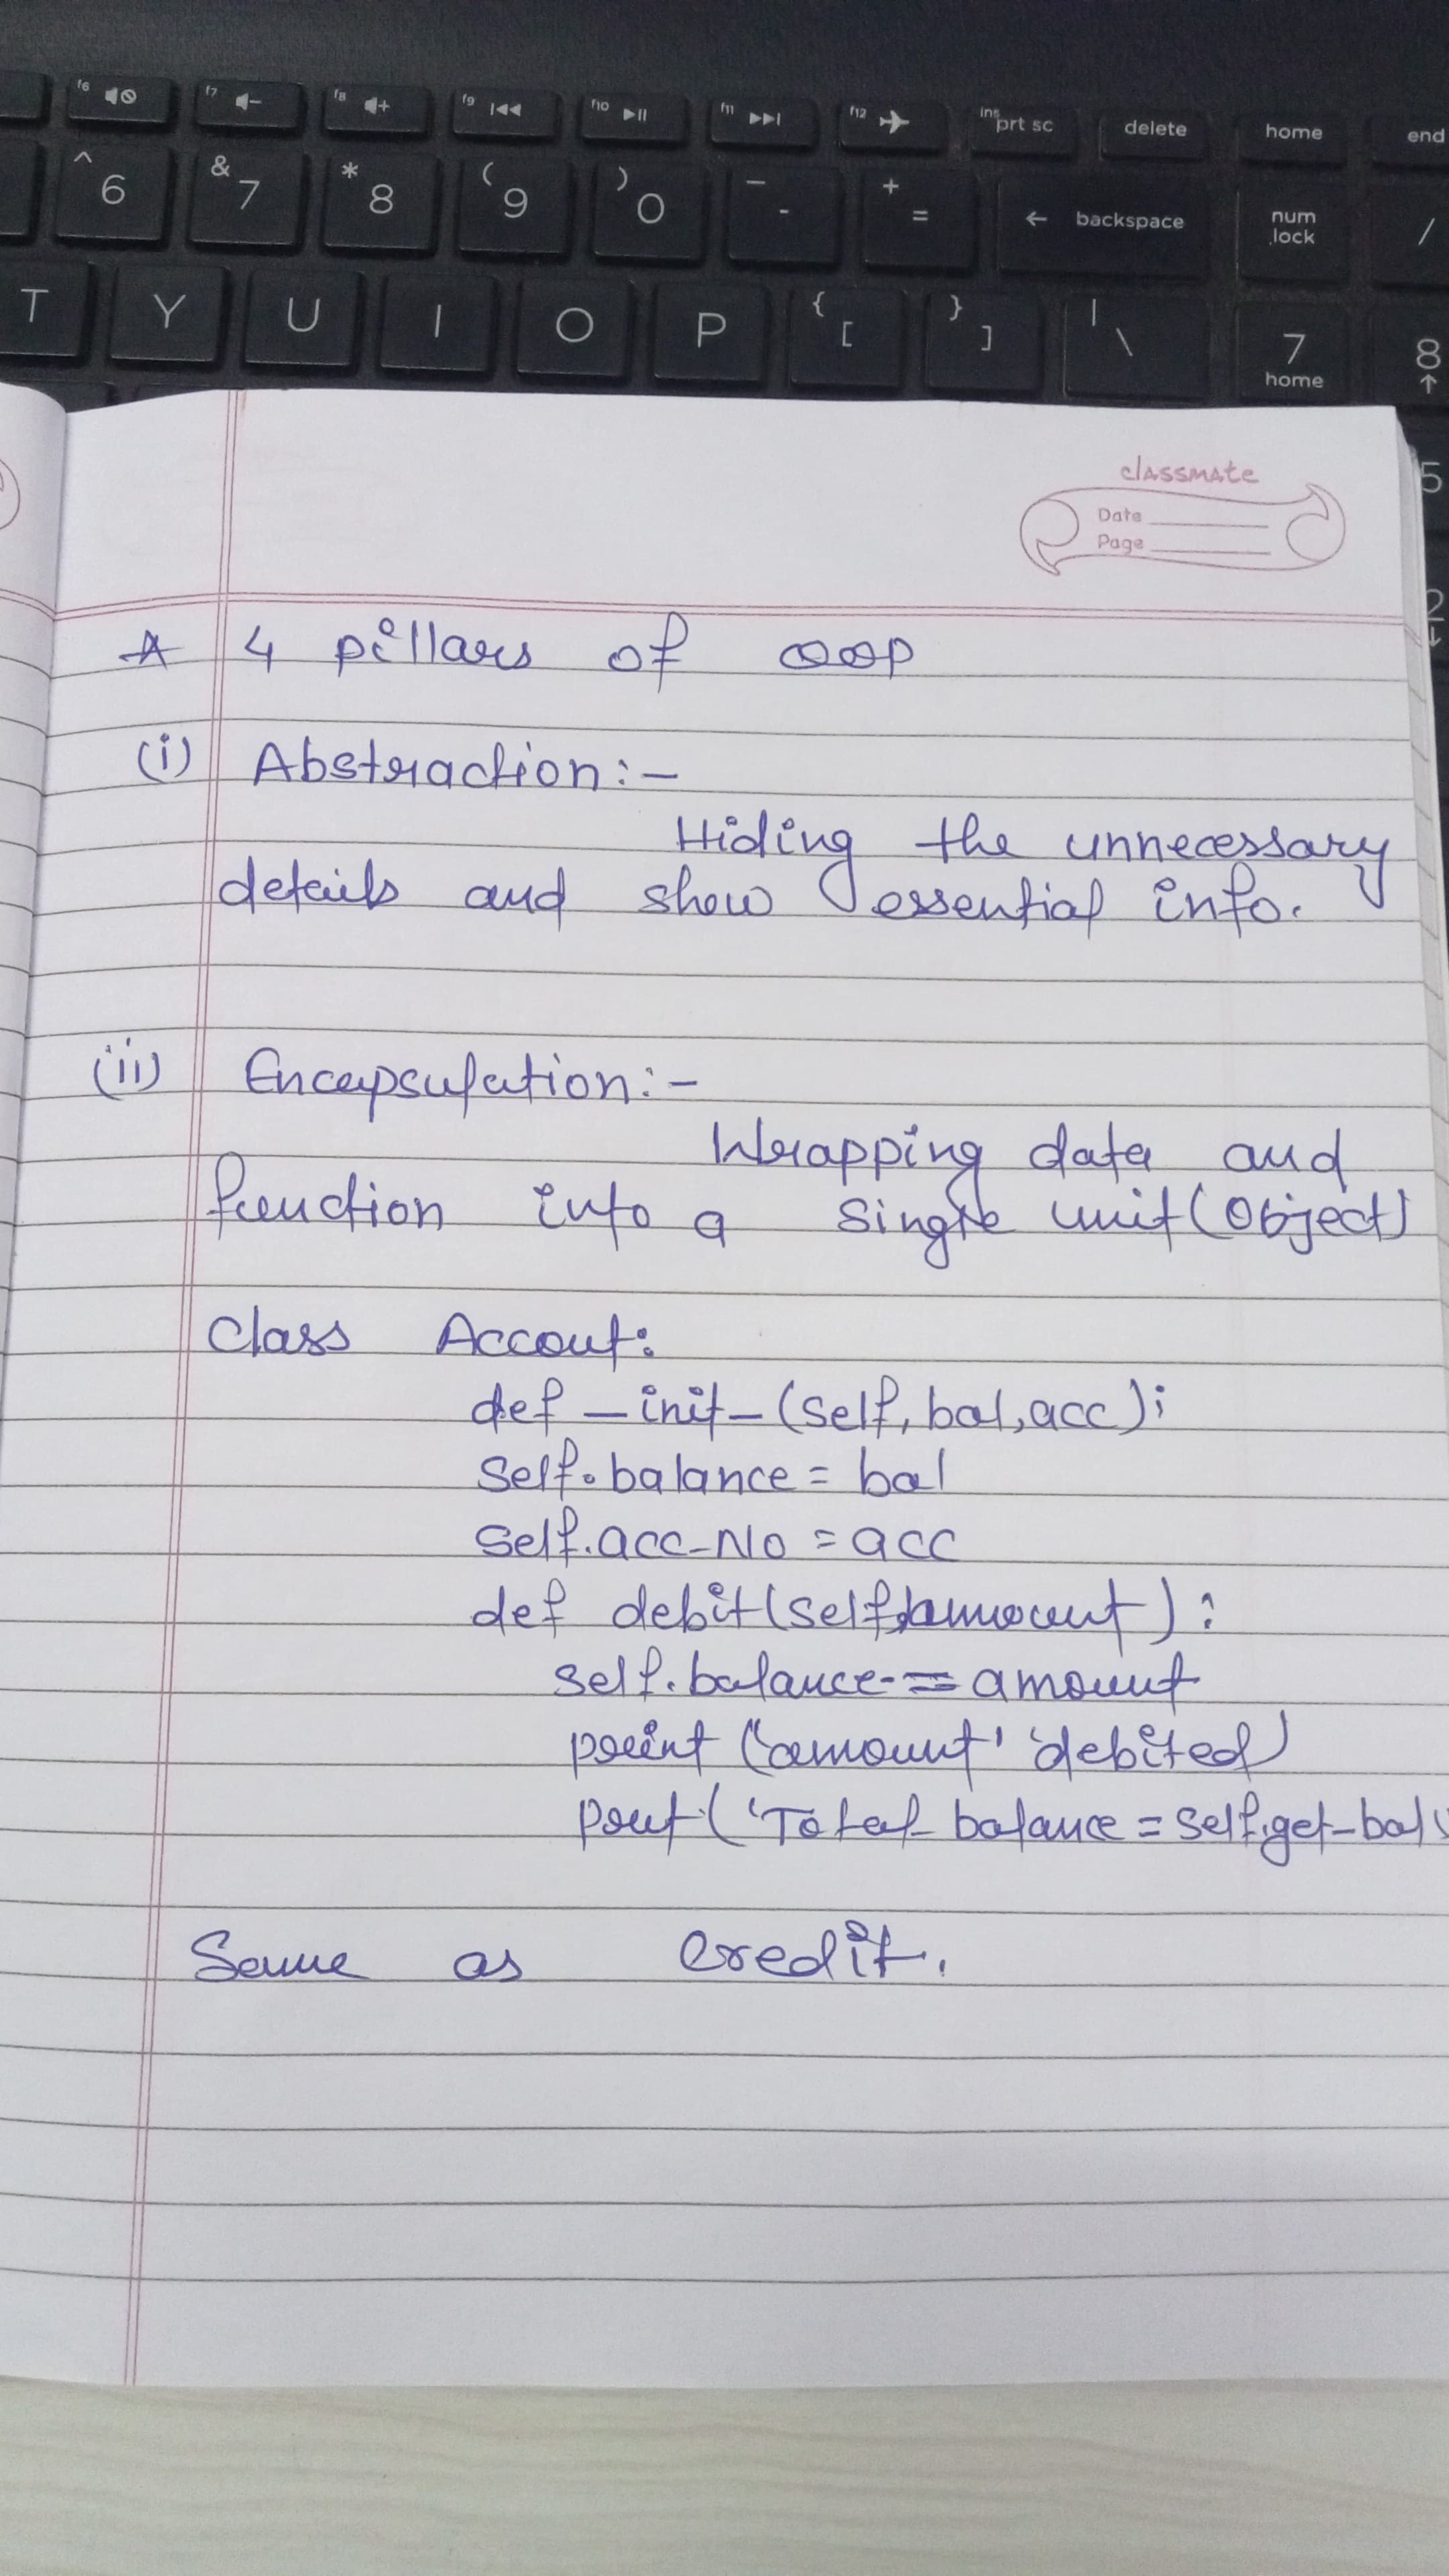 f6
f7 -
f8 +
f9
f10
f11
f12
ins prt sc
delete
home
end
^ 6
& 7
* 8
( 9
) 0
_ -
+ =
← backspace
num lock
/
T
Y
U
I
O
P
{ [
} ]
| \
7 home
8 ↑
5
2 ↓
classmate
Date
Page
4 pillars of OOP
(i) Abstraction:-
Hiding the unnecessary
details and show essential info.
(ii) Encapsulation:-
Wrapping data and
function into a single unit (Object)
Class Accout:
def _init_(self, bal, acc);
self.balance = bal
self.acc_No = acc
def debit(self, amount):
self.balance -= amount
print ("amount' 'debited)
print ('Total balance = self.get_bal
Same as credit.